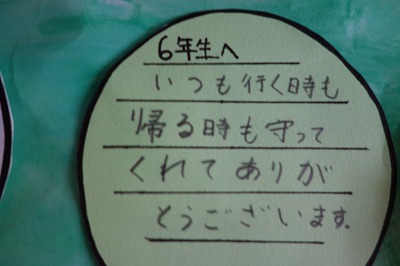 6年生へ
いつも行く時も
帰る時も守って
くれてありが
とうございます。